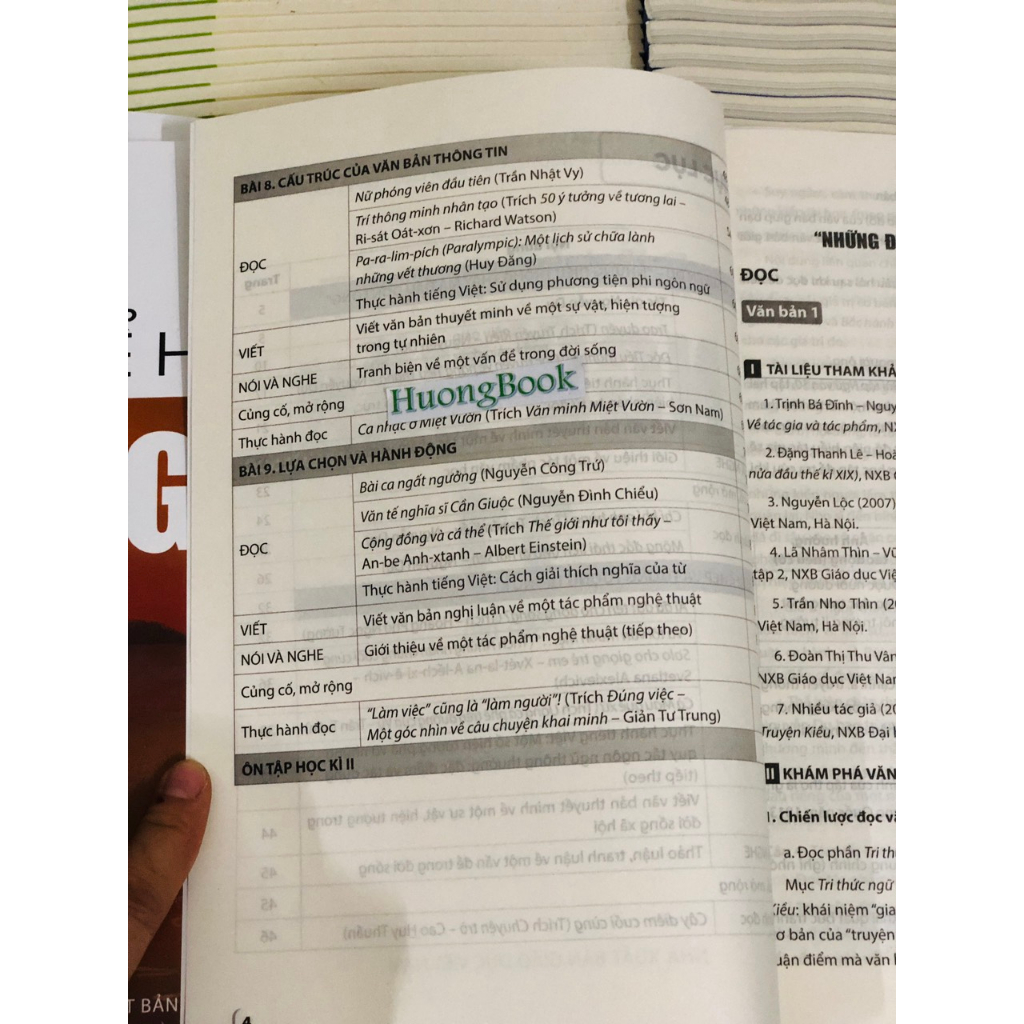 BÀI 8. CẤU TRÚC CỦA VĂN BẢN THÔNG TIN
ĐỌC
Nữ phóng viên đầu tiên (Trần Nhật Vy)
Trí thông minh nhân tạo (Trích 50 ý tưởng về tương lai –
Ri-sát Oát-xơn – Richard Watson)
Pa-ra-lim-pích (Paralympic): Một lịch sử chữa lành
những vết thương (Huy Đăng)
Thực hành tiếng Việt: Sử dụng phương tiện phi ngôn ngữ
VIẾT
Viết văn bản thuyết minh về một sự vật, hiện tượng
trong tự nhiên
NÓI VÀ NGHE
Tranh biện về một vấn đề trong đời sống
Củng cố, mở rộng
HuongBook
Thực hành đọc
Ca nhạc ở Miệt Vườn (Trích Văn minh Miệt Vườn – Sơn Nam)
BÀI 9. LỰA CHỌN VÀ HÀNH ĐỘNG
ĐỌC
Bài ca ngất ngưởng (Nguyễn Công Trứ)
Văn tế nghĩa sĩ Cần Giuộc (Nguyễn Đình Chiểu)
Cộng đồng và cá thể (Trích Thế giới như tôi thấy –
An-be Anh-xtanh – Albert Einstein)
Thực hành tiếng Việt: Cách giải thích nghĩa của từ
VIẾT
Viết văn bản nghị luận về một tác phẩm nghệ thuật
NÓI VÀ NGHE
Giới thiệu về một tác phẩm nghệ thuật (tiếp theo)
Củng cố, mở rộng
Thực hành đọc
"Làm việc" cũng là "làm người"! (Trích Đúng việc –
Một góc nhìn về câu chuyện khai minh – Giản Tư Trung)
ÔN TẬP HỌC KÌ II
4
"NHỮNG Đ
ĐỌC
Văn bản 1
I TÀI LIỆU THAM KHẢ
1. Trịnh Bá Đĩnh – Nguy
Về tác gia và tác phẩm, N
2. Đặng Thanh Lê – Hoà
nửa đầu thế kỉ XIX), NXB
3. Nguyễn Lộc (2007)
Việt Nam, Hà Nội.
4. Lã Nhâm Thìn – Vũ
tập 2, NXB Giáo dục Việ
5. Trần Nho Thìn (20
Việt Nam, Hà Nội.
6. Đoàn Thị Thu Vân
NXB Giáo dục Việt Nar
7. Nhiều tác giả (20
Truyện Kiều, NXB Đại
II KHÁM PHÁ VĂN
1. Chiến lược đọc v
a. Đọc phần Tri th
Mục Tri thức ngữ
Kiều: khái niệm "gia
ơ bản của "truyện
uận điểm mà văn
G
T BẢN